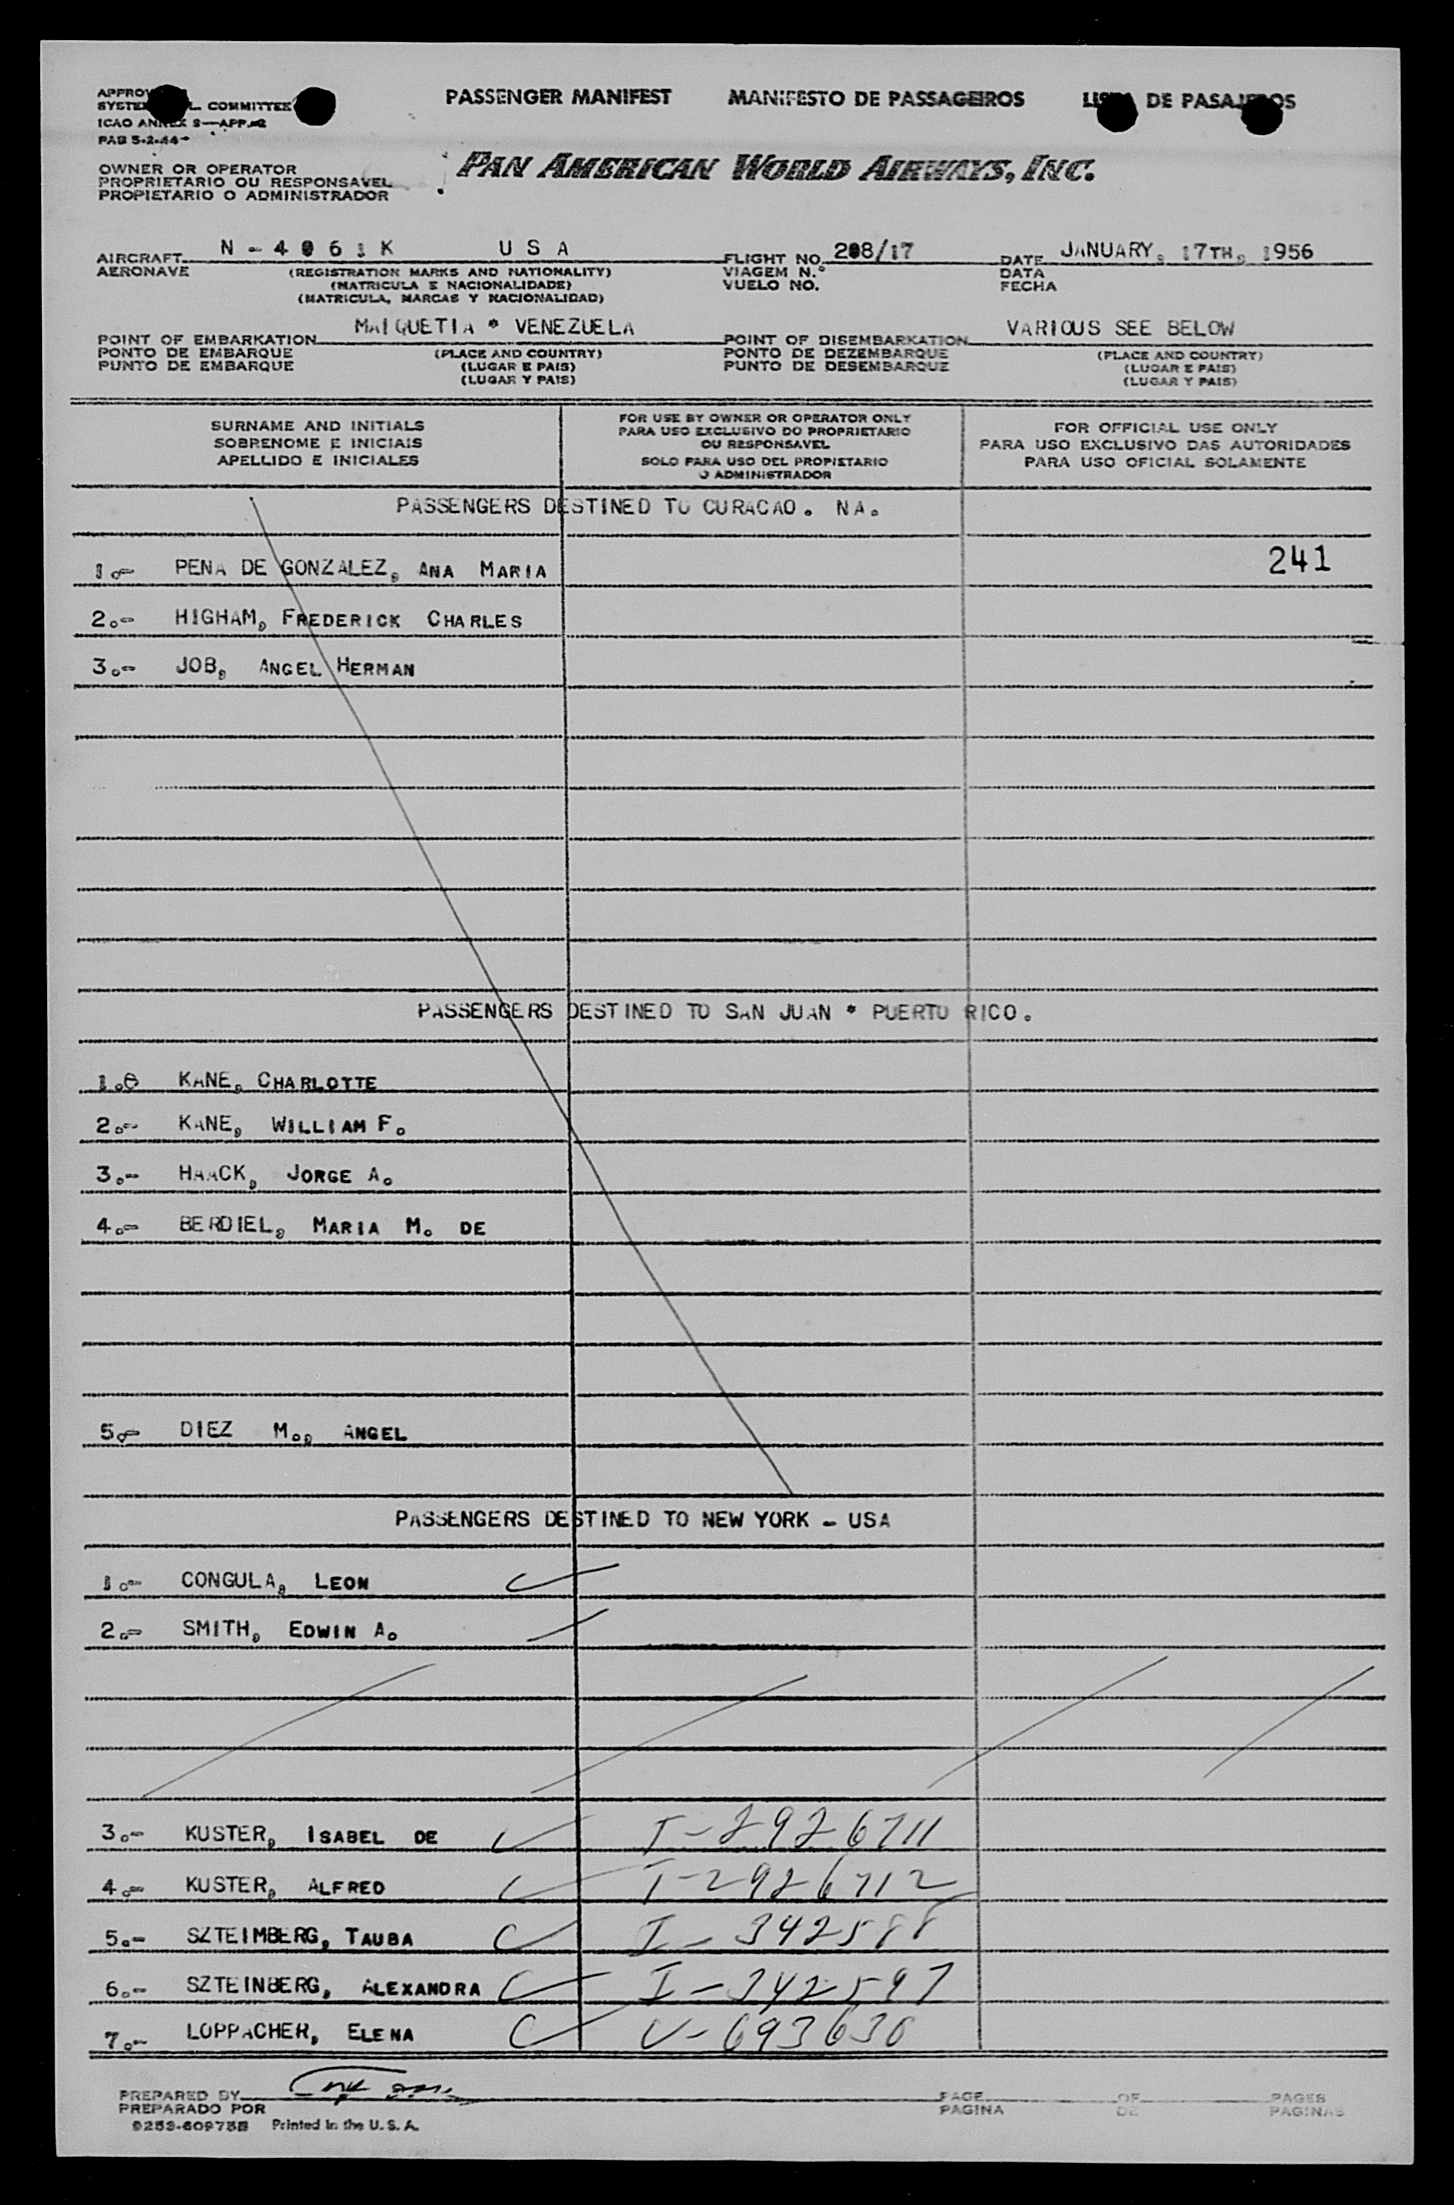 PASSENGER MANIFEST MANIFESTO DE PASSAGEIROS LISTA DE PASAJEROS
COMMITTEE
ICAO ANNEX 9—APP.
PAB 5-2-44
OWNER OR OPERATOR
PROPRIETARIO OU RESPONSAVEL
PROPIETARIO O ADMINISTRADOR
PAN AMERICAN WORLD AIRWAYS, INC.
AIRCRAFT N-4061K USA FLIGHT NO. 208/17 DATE JANUARY, 17TH, 1956
AERONAVE (REGISTRATION MARKS AND NATIONALITY) VIAGEM N.° DATA
(MATRICULA E NACIONALIDADE) VUELO NO. FECHA
(MATRICULA, MARCAS Y NACIONALIDAD)
POINT OF EMBARKATION MAIQUETIA * VENEZUELA POINT OF DISEMBARKATION VARIOUS SEE BELOW
PONTO DE EMBARQUE (PLACE AND COUNTRY) PONTO DE DEZEMBARQUE (PLACE AND COUNTRY)
PUNTO DE EMBARQUE (LUGAR E PAIS) PUNTO DE DESEMBARQUE (LUGAR E PAIS)
(LUGAR Y PAIS) (LUGAR Y PAIS)
SURNAME AND INITIALS
SOBRENOME E INICIAIS
APELLIDO E INICIALES
FOR USE BY OWNER OR OPERATOR ONLY
PARA USO EXCLUSIVO DO PROPRIETARIO
OU RESPONSAVEL
SOLO PARA USO DEL PROPIETARIO
O ADMINISTRADOR
FOR OFFICIAL USE ONLY
PARA USO EXCLUSIVO DAS AUTORIDADES
PARA USO OFICIAL SOLAMENTE
PASSENGERS DESTINED TO CURACAO. NA.
1.- PENA DE GONZALEZ, ANA MARIA 241
2.- HIGHAM, FREDERICK CHARLES
3.- JOB, ANGEL HERMAN
PASSENGERS DESTINED TO SAN JUAN * PUERTO RICO.
1.- KANE, CHARLOTTE
2.- KANE, WILLIAM F.
3.- HAACK, JORGE A.
4.- BERDIEL, MARIA M. DE
5.- DIEZ M., ANGEL
PASSENGERS DESTINED TO NEW YORK - USA
1.- CONGULA, LEON
2.- SMITH, EDWIN A.
3.- KUSTER, ISABEL DE I-2926711
4.- KUSTER, ALFRED I-2926712
5.- SZTEIMBERG, TAUBA I-342588
6.- SZTEINBERG, ALEXANDRA I-342597
7.- LOPPACHER, ELENA V-693630
PREPARED BY PAGE OF PAGES
PREPARADO POR PAGINA DE PAGINAS
Printed in the U.S.A.